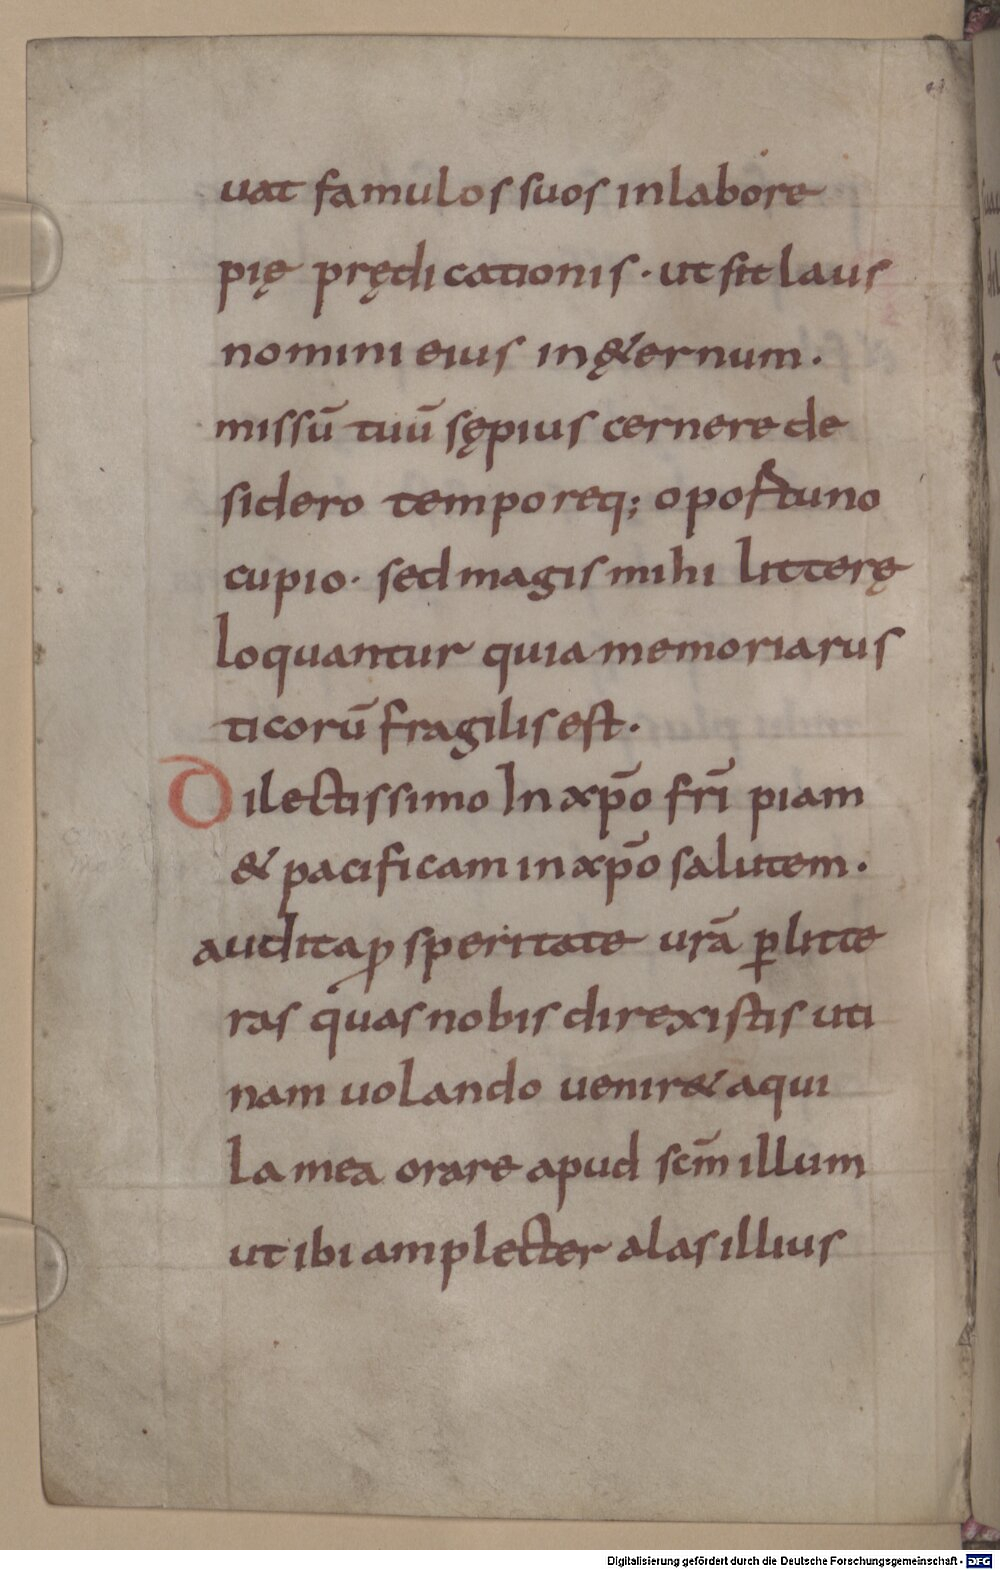 uat famulos suos in labore
pię prędicationis · ut sit laus
nomini eius in ę&ernum .
missū tuū sępius cernere de
sidero temporeq; oportuno
cupio · sed magis mihi litterę
loquantur quia memoria rus
ticorū fragilis est .
Dilectissimo In xp̄o fr̄i piam
& pacificam in xp̄o salutem .
audita ꝓsperitate ur̄a ꝑ litte
ras quas nobis direxistis uti
nam uolando uenir& aqui
la mea orare apud sc̄m illum
ut ibi amplecter alas illius
Digitalisierung gefördert durch die Deutsche Forschungsgemeinschaft - DFG